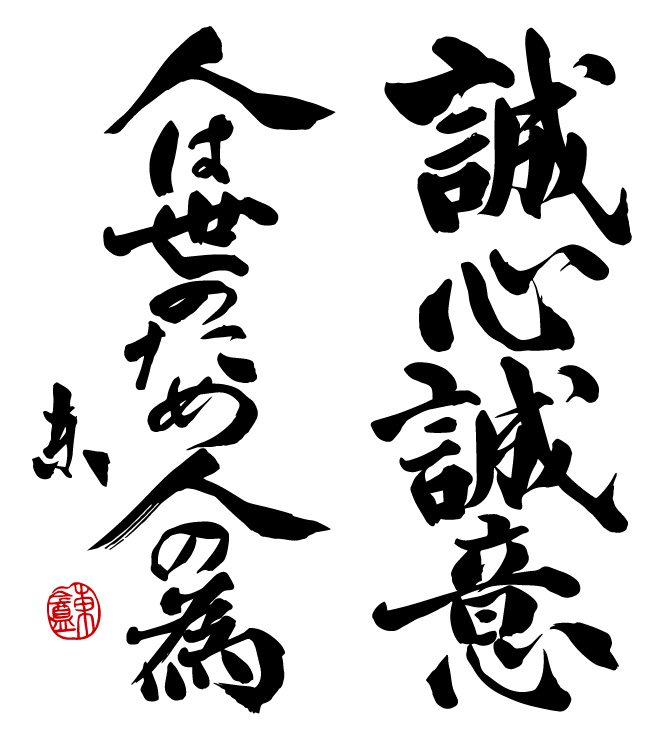 誠心誠意
人は世のため人の為
东